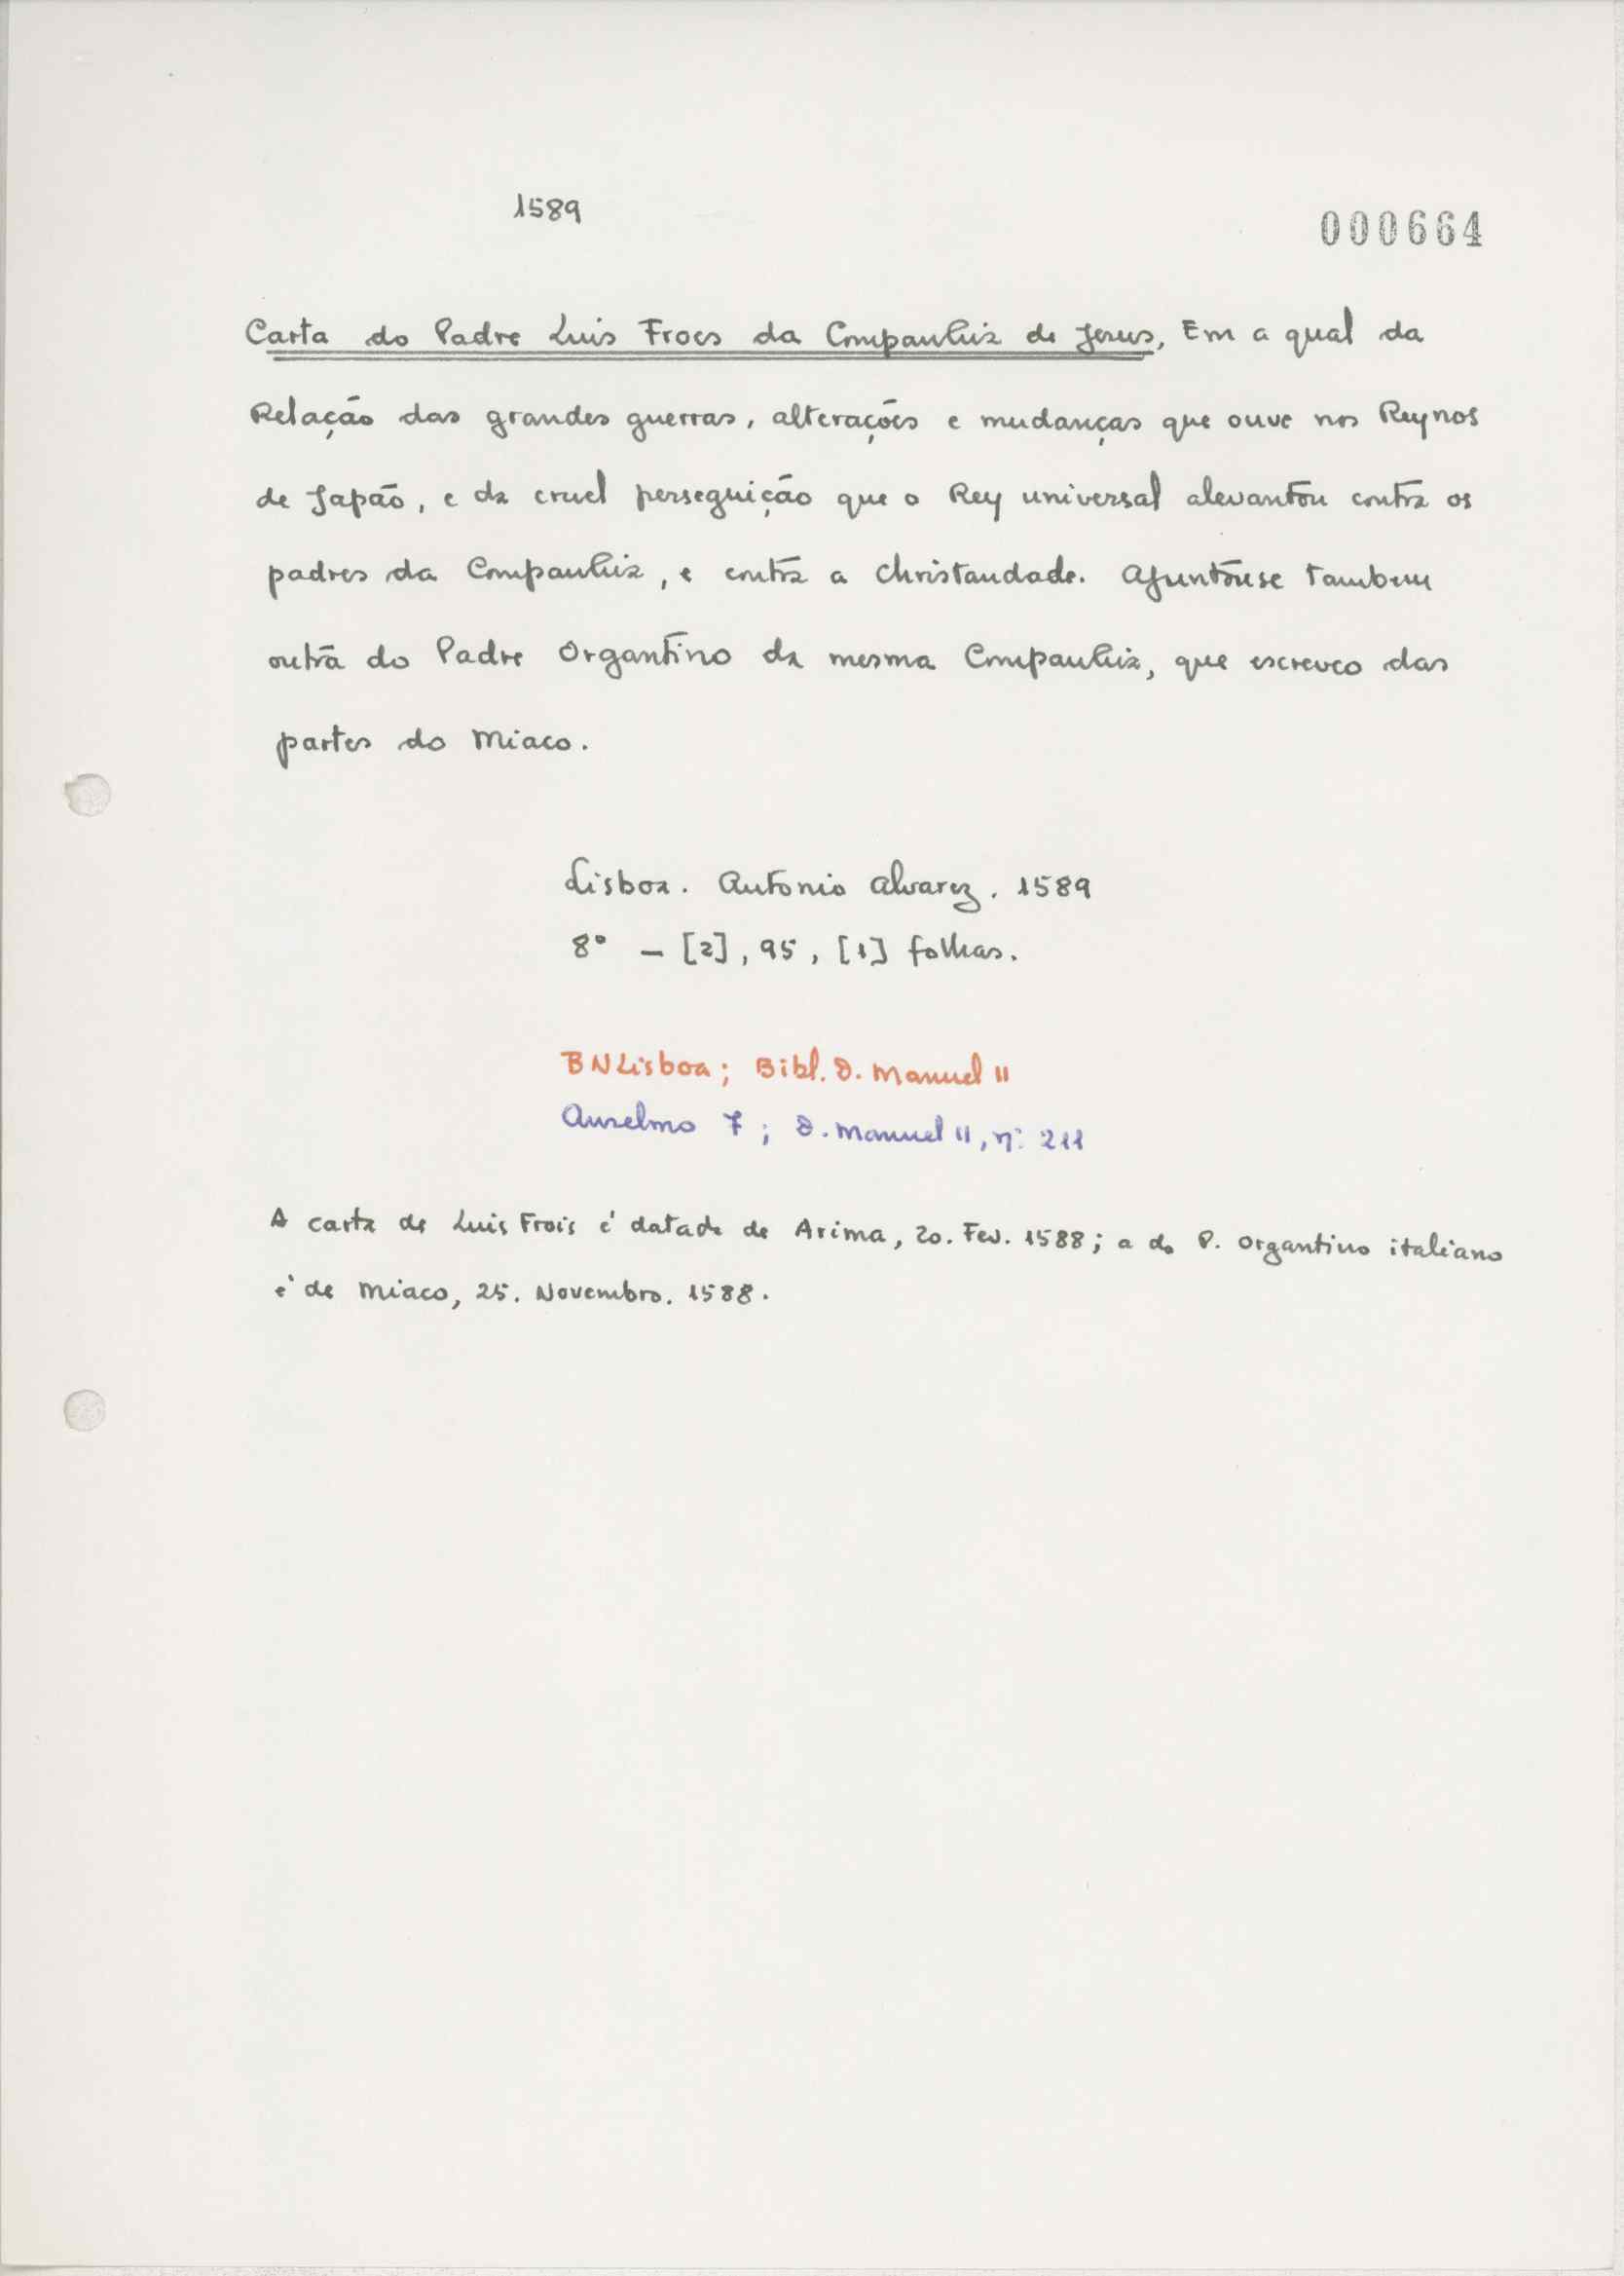 1589
000664
Carta do Padre Luis Froes da Companhia de Jesus, Em a qual da
Relação das grandes guerras, alterações e mudanças que ouve nos Reynos
de Japão, e da cruel perseguição que o Rey universal alevantou contra os
padres da Companhia, e contra a Christandade. Ajuntouse tambem
outra do Padre Organtino da mesma Companhia, que escreveo das
partes do Miaco.
Lisboa. Antonio Alvarez. 1589
8° - [2], 95, [1] folhas.
BNLisboa; Bibl. D. Manuel II
Anselmo 7; D. Manuel II, nº 211
A carta de Luis Frois é datada de Arima, 20. Fev. 1588; a do P. Organtino italiano
é de Miaco, 25. Novembro. 1588.